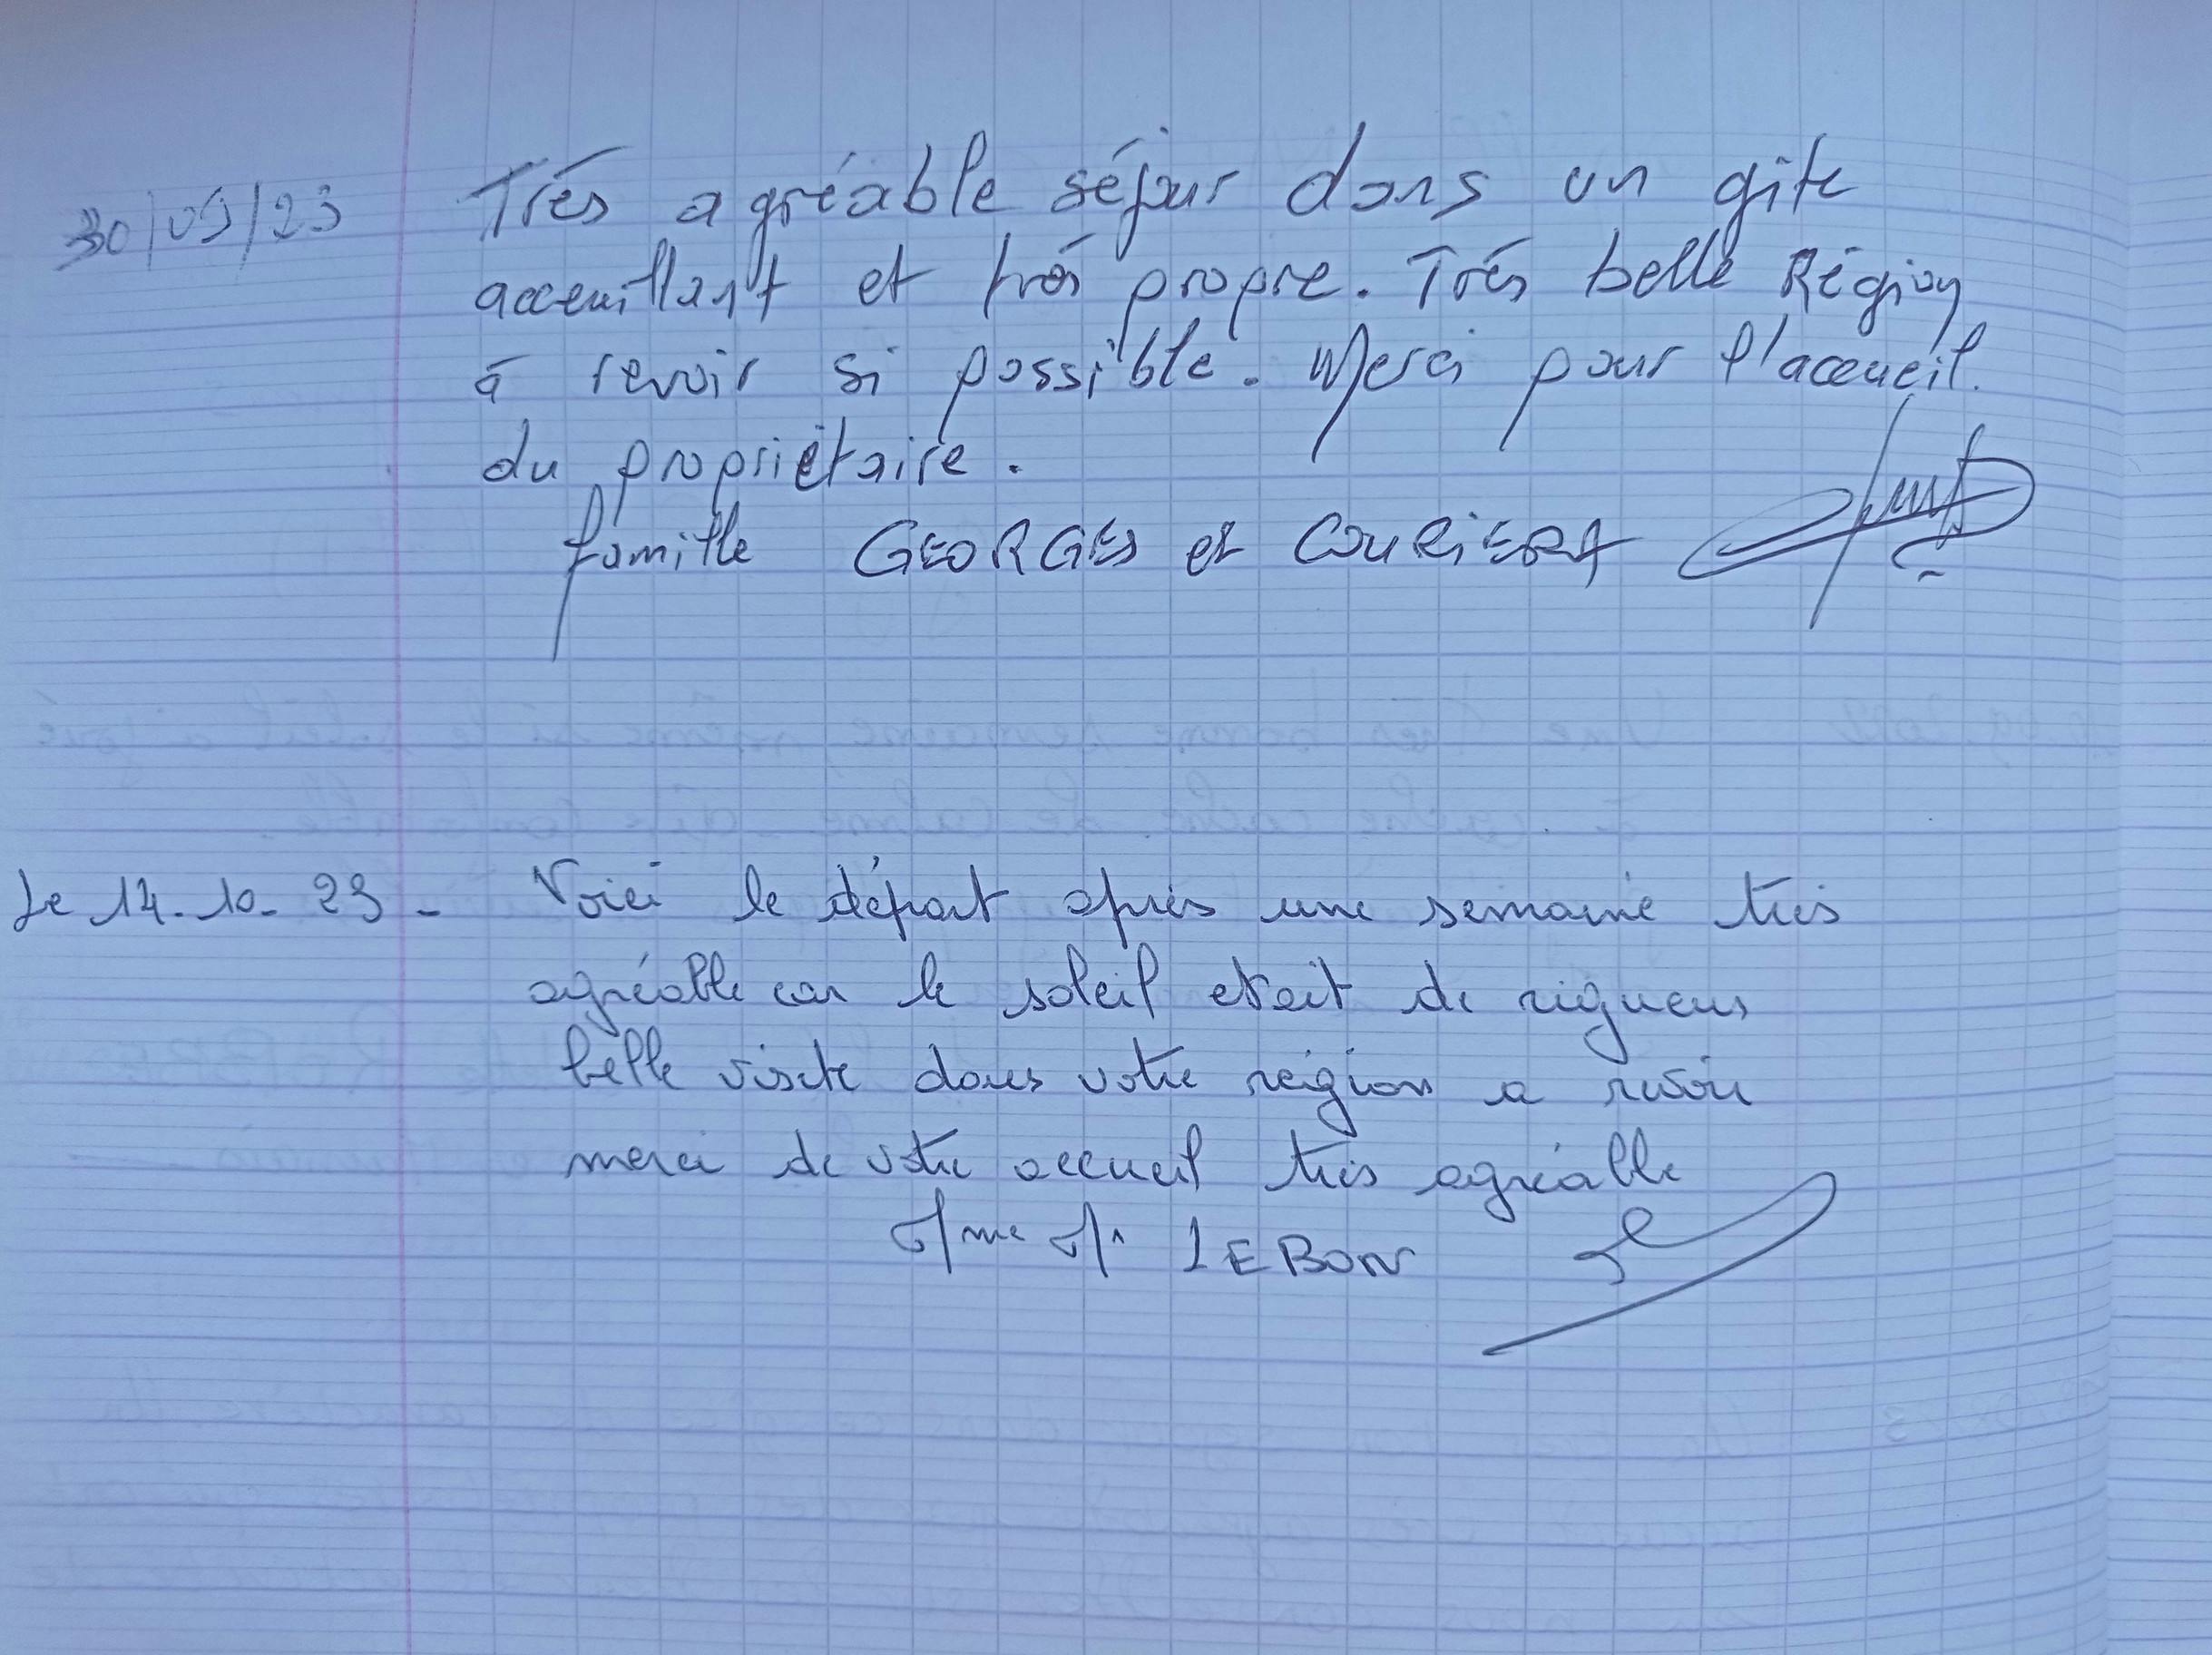 30/09/23 Très agréable séjour dans un gîte
acceuillant et très propre. Très belle Région
à revoir si possible. Merci pour l'accueil.
du propriétaire.
famille GEORGES et
Le 14.10.23 - Voici le départ après une semaine très
agréable car le soleil etait de rigueur
belle visite dans votre région a revoir
merci de votre accueil très agréable
Mme Mr LEBON